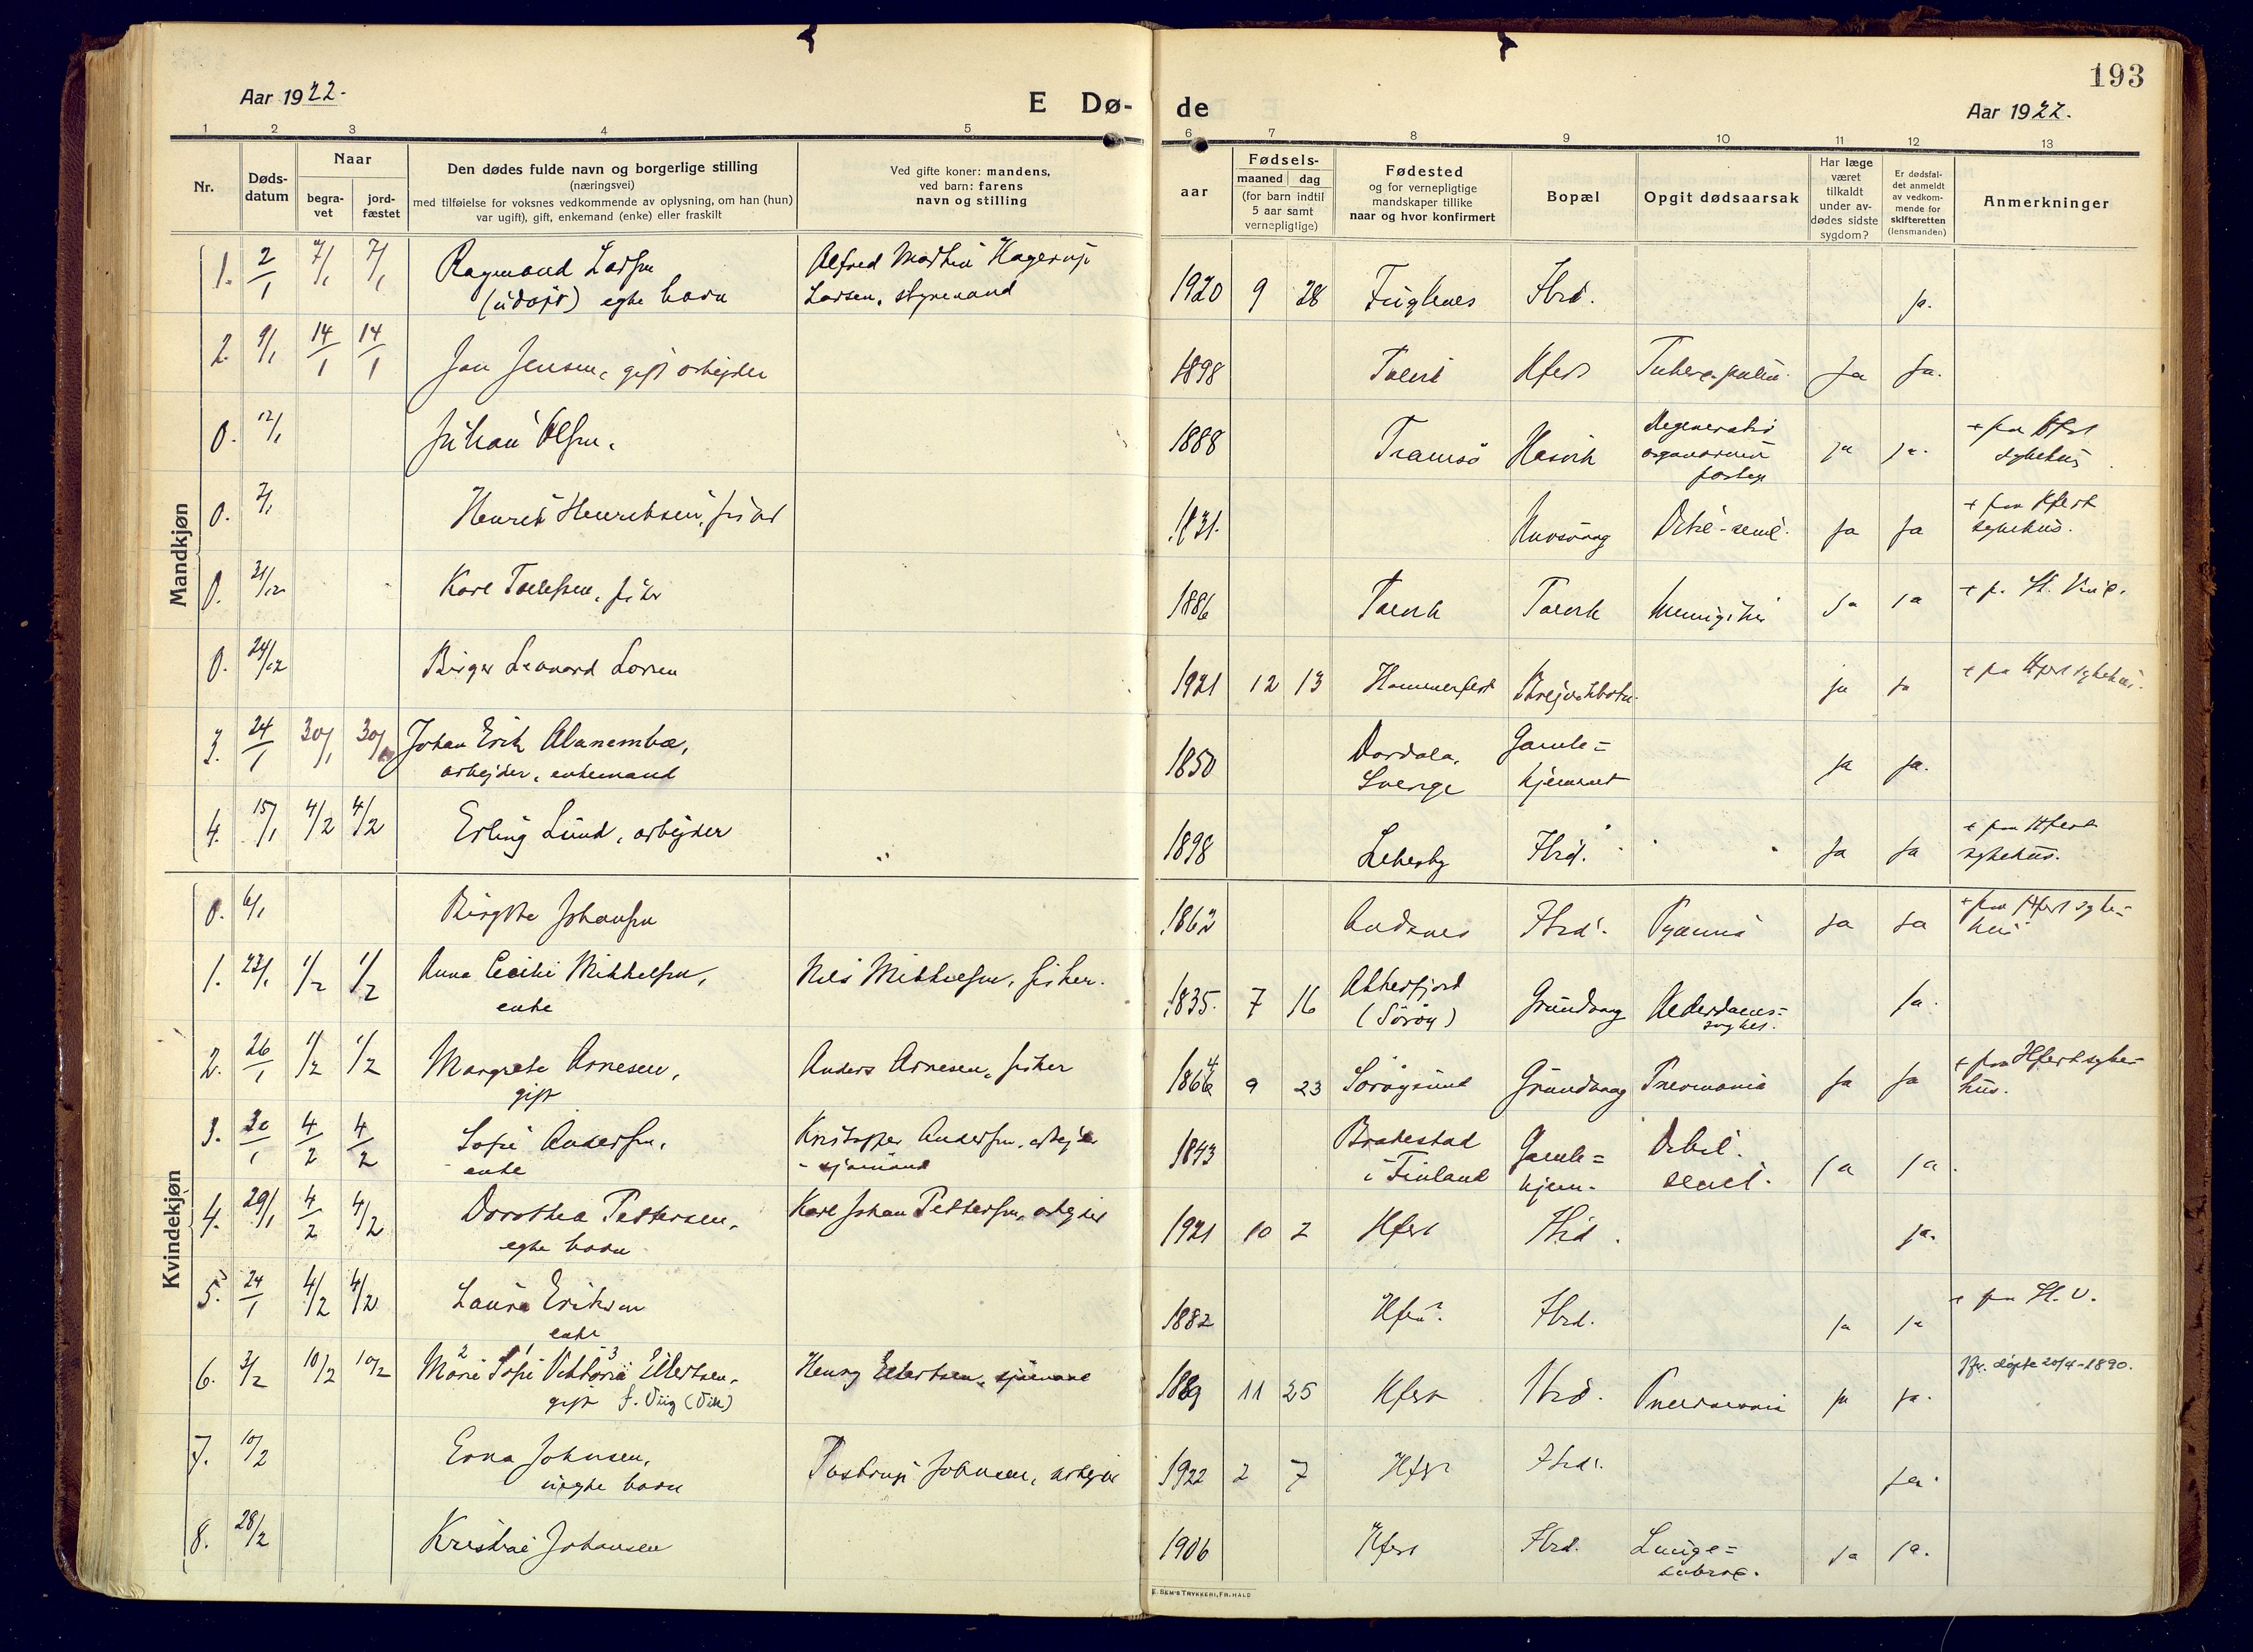 193
Aar 1922.
E Dø-
de
Aar 1922.
1 2 3 4 5 6 7 8 9 10 11 12 13
Nr.
Døds-
datum
Naar
begra-
vet
jord-
fæstet
Den dødes fulde navn og borgerlige stilling
(næringsvei)
med tilføielse for voksnes vedkommende av oplysning, om han (hun)
var ugift), gift, enkemand (enke) eller fraskilt
Ved gifte koner: mandens,
ved barn: farens
navn og stilling
aar
Fødsels-
maaned dag
(for barn indtil
5 aar samt
vernepligtige)
Fødested
og for vernepligtige
mandskaper tillike
naar og hvor konfirmert
Bopæl
Opgit dødsaarsak
Har læge
været
tilkaldt
under av-
dødes sidste
sygdom?
Er dødsfal-
det anmeldt
av vedkom-
mende for
skifteretten
(lensmanden)
Anmerkninger
Mandkjøn
1. 2/1 7/1 7/1 Raymond Larsen Alfred Martin Hagerup
(udøpt) egte barn Larsen, styrmand 1920 9 28 Fuglenes Ibid. ja.
2. 9/1 14/1 14/1 Jan Jensen, gift arbejder 1898 Talvik Hfest Ja Ja.
0. 12/1 Johan Olsen. 1888 Tromsø Hasvik Degeneratio ja ja. + paa Hfest
sykehus
0. Henrik Henriksen, fisker 1831. Debil. senil. ja ja + paa Hfest
sykehus.
0. 31/12 Karl Tollefsen, fisker 1886 Talvik Talvik Meningitis Ja ja
0. 24/12 Birger Leonard Larsen 1921 12 13 Hammerfest ja ja + paa Hfest sykehus.
3. 24/1 30/1 30/1 Johan Erik Alanemba, 1850 Gamle=
arbejder, enkemand Sverige hjemmet ja ja.
4. 15/1 4/2 4/2 Erling Lund, arbejder 1898 Lebesby Ibid. Ja Ja + paa Hfest
sykehus.
Kvindekjøn
0. 6/1 Birgitte Johansen Andenes Ibid. Pyæmia Ja Ja + paa Hfest syke=
hus
1. 23/1 1/2 1/2 Anna Cecilie Mikkelsen, Nils Mikkelsen, fisker. 1835. 7 16 Akkerfjord
enke (Sørøy) Grundvaag Ja.
2. 26/1 1/2 1/2 Margrete Arnesen, Anders Arnesen, fisker 1864 9 23 Sørøysund Grundvaag Pneumonia Ja Ja + paa Hfest syke=
gift hus.
3. 30/1 4/2 4/2 Sofie Andersen, Kristoffer Andersen, arbejder 1843 Brahestad Gamle= Debil.
enke - sjømand i Finland hjem. senil. Ja Ja.
4. 29/1 4/2 4/2 Dorothea Pettersen, Karl Johan Pettersen, arbejder 1921 10 2 Hfest Ibid. ja.
egte barn
5. 24/1 4/2 4/2 Laura Eriksen 1882 Hfest. Ibid. ja ja + paa St. V.
enke
6. 3/2 10/2 10/2 Marie Sofie Viktoria Ellertsen, Henry Ellertsen, sjømand 1889 11 25 Hfest Ibid. Pneumonia ja ja. Jfr. døpte 20/4-1890.
2 1 3
gift f. Viig (Vik)
7. 10/2 Erna Johnsen, Tostrup Johnsen, arbejder 1922 2 7 Hfest Ibid. ja.
uegte barn
8. 28/2 Kristine Johansen 1906 Hfest Ibid. Lunge= Ja ja.
E. SEM'S TRYKKERI, FR.HALD